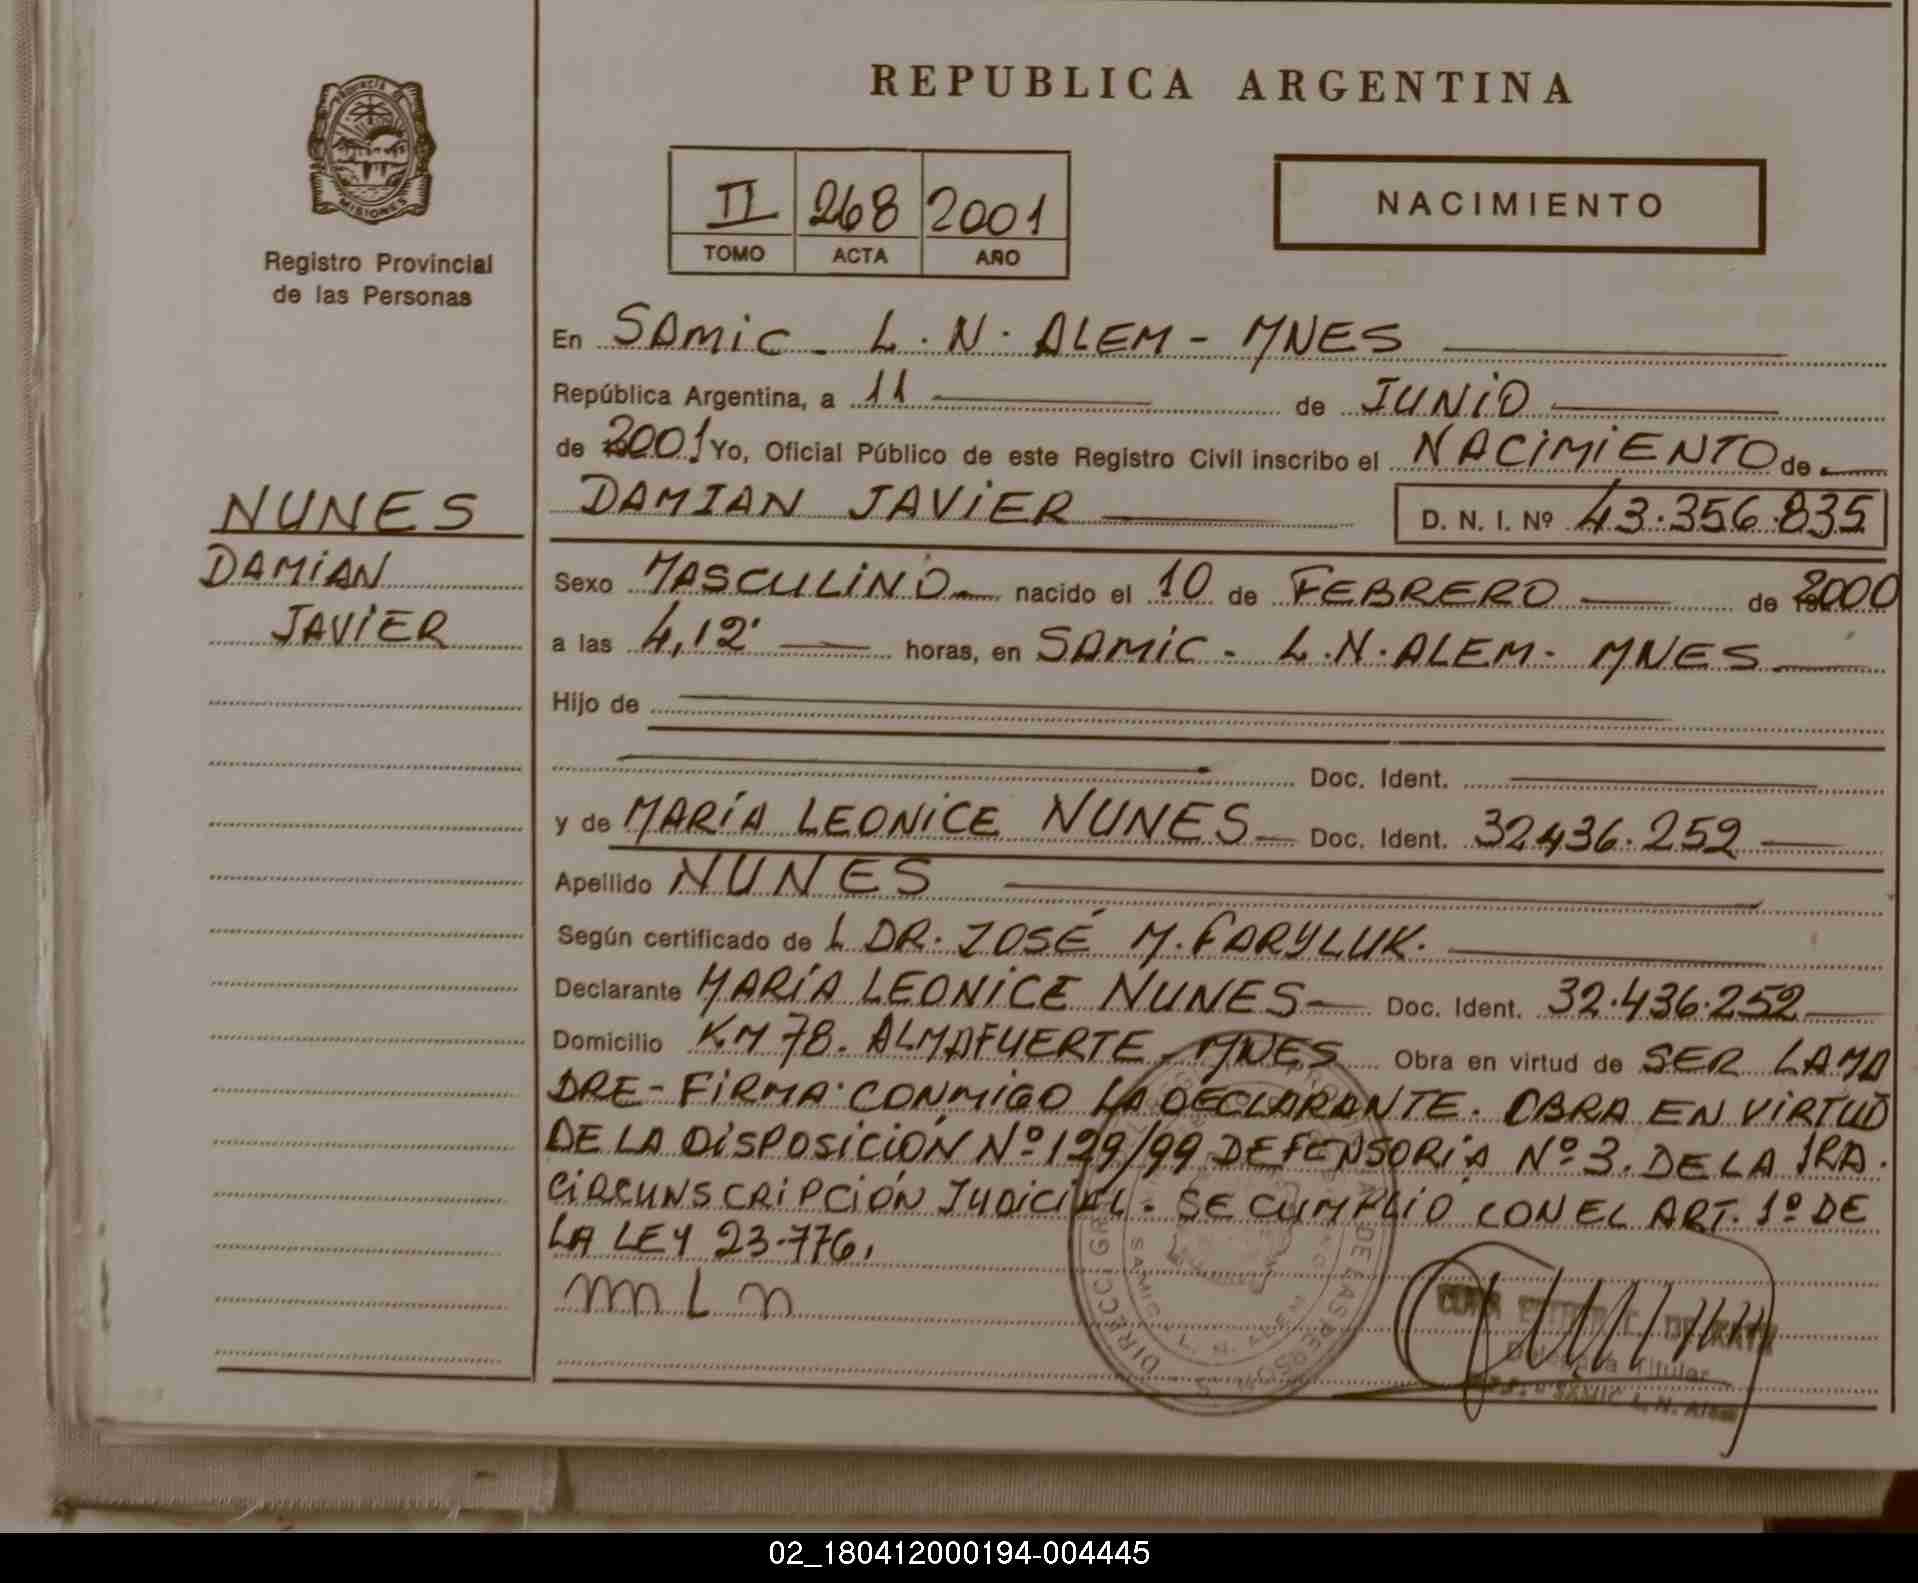 REPUBLICA ARGENTINA
PROVINCIA DE MISIONES
Registro Provincial
de las Personas
II 268 2001
TOMO ACTA AÑO
NACIMIENTO
En SAMIC - L.N. ALEM - MNES
República Argentina, a 11 de JUNIO
de 2001 Yo, Oficial Público de este Registro Civil inscribo el NACIMIENTO de
DAMIAN JAVIER D. N. I. Nº 43.356.835
NUNES
DAMIAN
JAVIER
Sexo MASCULINO nacido el 10 de FEBRERO de 2000
a las 4,12' horas, en SAMIC - L.N. ALEM - MNES
Hijo de
Doc. Ident.
y de MARÍA LEONICE NUNES Doc. Ident. 32.436.252
Apellido NUNES
Según certificado de L DR. JOSÉ M. FARYLUK.
Declarante MARÍA LEONICE NUNES Doc. Ident. 32.436.252
Domicilio KM 78. ALMAFUERTE - MNES Obra en virtud de SER LA MA
DRE - FIRMA CONMIGO LA DECLARANTE. OBRA EN VIRTUD
DE LA DISPOSICIÓN Nº 129/99 DEFENSORÍA Nº 3. DE LA 1RA.
CIRCUNSCRIPCIÓN JUDICIAL. SE CUMPLIÓ CON EL ART. 1º DE
LA LEY 23.776.
m L n
Delegada Titular
SAMIC L. N. Alem
02_180412000194-004445